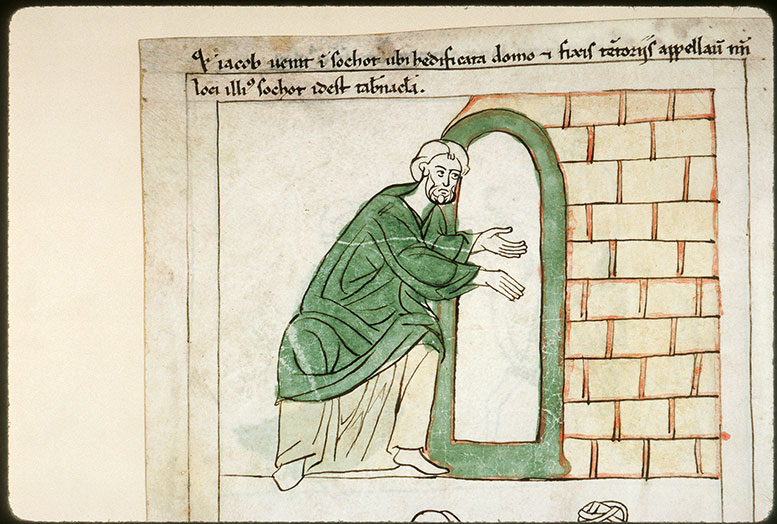 Qͥ iacob uenit ī sochot ubi hedificata domo ⁊ fixis tētorijs appellauͭ nm̄
loci illiꝰ sochot idest tab̄nacl̄a.